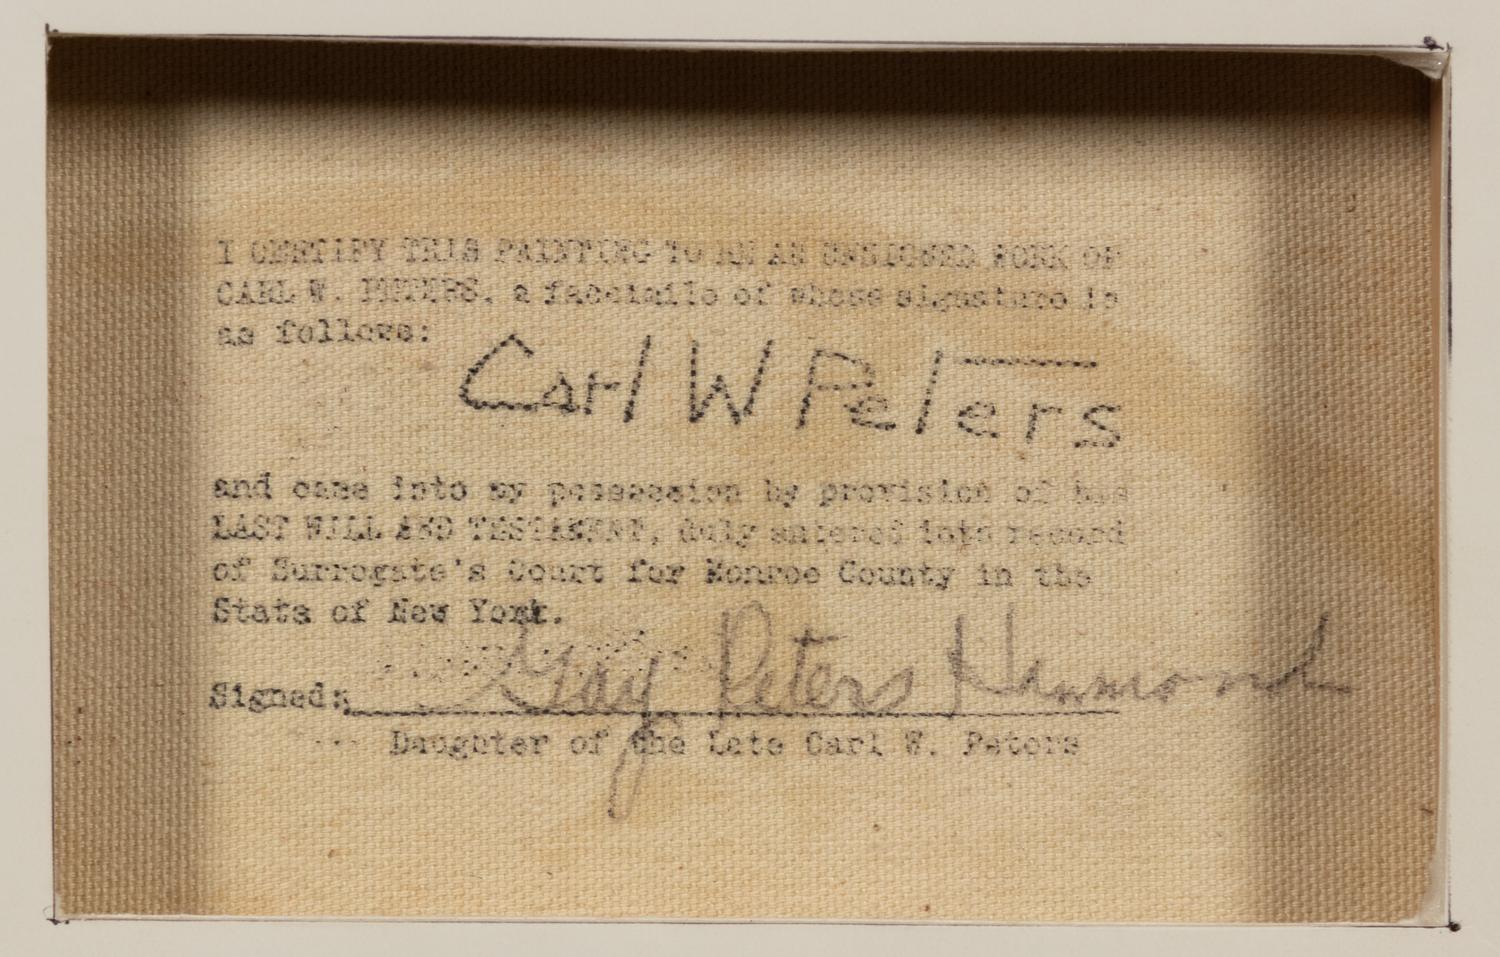 I CERTIFY THIS PAINTING TO BE AN UNSIGNED WORK OF
CARL W. PETERS, a facsimile of whose signature is
as follows:
Carl W Peters
and came into my possession by provision of his
LAST WILL AND TESTAMENT, duly entered into record
of Surrogate's Court for Monroe County in the
State of New York.
Signed: Gay Peters Hammond
Daughter of the Late Carl W. Peters